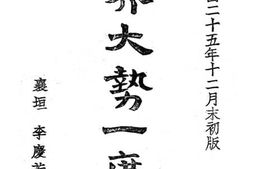 二十五年十二月末初版
界大勢一
襄垣 李慶